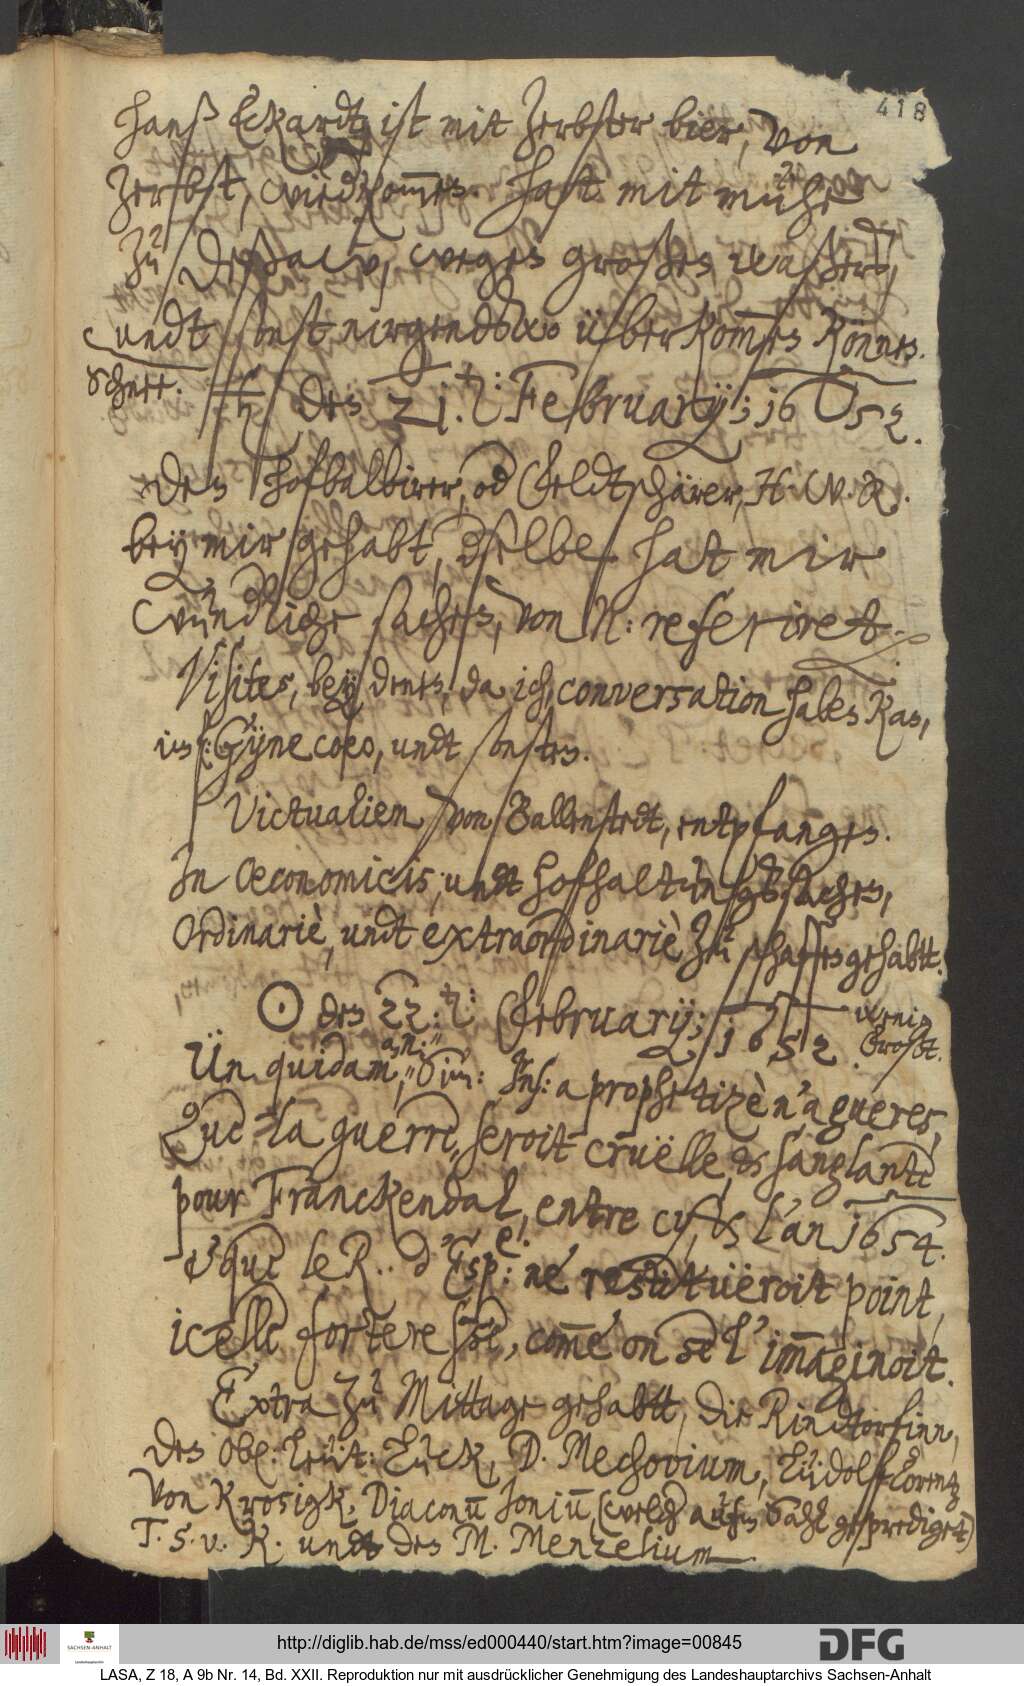 418
Hanß Eckardt ist mit Zerbster bier, von
Zerbst, wiedkom̅en. Hatt mit mühe
zu Deßaw, wegen großen waßers,
undt sonst nirgendswo überkom̅en können.
Schnee. ♄ den 21. Februarÿ; 1652.
Den Hofbalbirer, od Feldtschärer, H. W. R.
beÿ mir gehabt, dselbe hat mir
wündliche sachen, von N: referiret.
Visiten, beÿ denen, da ich, conversation haben kan,
in: Gÿnecoeo, undt sonsten.
Victualien von Ballenstedt, entpfangen.
In Oeconomicis, undt hofhaltungssachen,
Ordinariè, undt extraordinariè zu schaffen gehabtt.
☉ den 22. Februarÿ; 1652. wenig
Frost.
Ün quidam, a prophetizè n'a gueres,
Que la guerre, seroit cruëlle, & sanglante
pour Franckendal, entre cy, & l'an 1654.
& que le R.. d'Esp: ne restituëroit point,
icelle forteresse, com̅e on se l'im̅aginoit.
Extra zu Mittage gehabtt, die Rindtorfinn,
den Ob. Leut: Lück, D. Mechovium, Lüdolff Lorentz
von Krosigk, Diaconū Joniū, (welch aufm Sahl geprediget)
T. S. v. K. undt den M. Menzelium.
http://diglib.hab.de/mss/ed000440/start.htm?image=00845
DFG
SACHSEN-ANHALT
LASA, Z 18, A 9b Nr. 14, Bd. XXII. Reproduktion nur mit ausdrücklicher Genehmigung des Landeshauptarchivs Sachsen-Anhalt